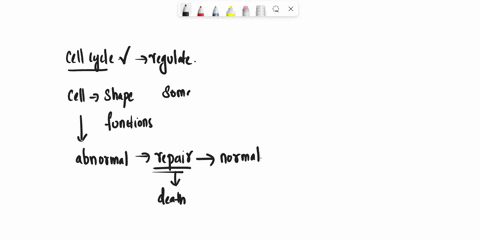 Cell cycle ✓ → regulate.
Cell → Shape Some
↓ functions
abnormal → repair → normal
↓
death